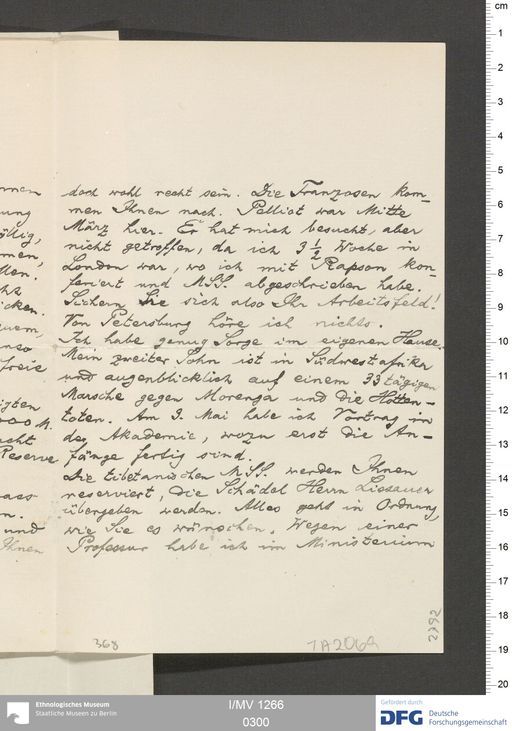 doch wohl recht sein. Die Franzosen kom-
men Ihnen nach. Pelliot war Mitte
März hier. Er hat mich besucht, aber
nicht getroffen, da ich 3 1/2 Woche in
London war, wo ich mit Rapson kon-
feriert und MSS abgeschrieben habe.
Sichern Sie sich also Ihr Arbeitsfeld!
Von Petersburg höre ich nichts.
Ich habe genug Sorge im eigenen Hause.
Mein zweiter Sohn ist in Südwestafrika
und augenblicklich auf einem 33 tägigen
Marsche gegen Morenga und die Hotten-
toten. Am 3. Mai habe ich Vortrag in
der Akademie, wozu erst die An-
fänge fertig sind.
Die tibetanischen MSS. werden Ihnen
reserviert, die Schädel Herrn Lissauer
übergeben werden. Alles geht in Ordnung,
wie Sie es wünschen. Wegen einer
Professur habe ich im Ministerium
ung
men,
icken.
freie
igten
000 M.
Reserve
und
Ihnen
368
IA2069
2792
cm
1
2
3
4
5
6
7
8
9
10
11
12
13
14
15
16
17
18
19
20
Ethnologisches Museum
Staatliche Museen zu Berlin
I/MV 1266
0300
Gefördert durch
DFG Deutsche
Forschungsgemeinschaft